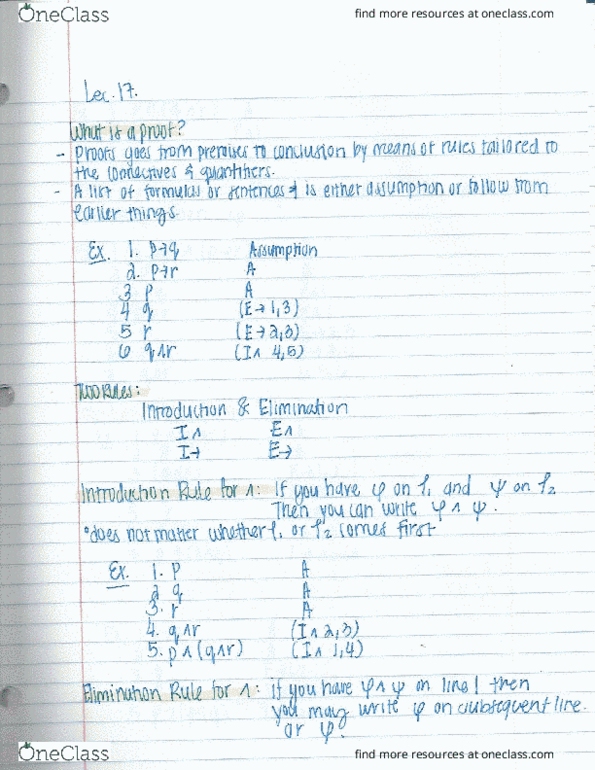 OneClass
find more resources at oneclass.com
Lec. 17.
What is a proof?
- Proofs goes from premises to conclusion by means of rules tailored to
the connectives & quantifiers.
- A list of formulas or sentences & is either assumption or follow from
earlier things.
Ex. 1. p→q Assumption
2. p→r A
3 p A
4 q (E→ 1,3)
5 r (E→ 2,3)
6 q∧r (I∧ 4,5)
Two Rules:
Introduction & Elimination
I∧ E∧
I→ E→
Introduction Rule for ∧: If you have φ on l₁ and ψ on l₂
Then you can write φ ∧ ψ.
*does not matter whether l₁ or l₂ comes first
Ex. 1. p A
2 q A
3. r A
4. q∧r (I∧ 2,3)
5. p∧(q∧r) (I∧ 1,4)
Elimination Rule for ∧: if you have φ∧ψ on line l then
you may write φ on subsequent line.
or ψ.
OneClass
find more resources at oneclass.com